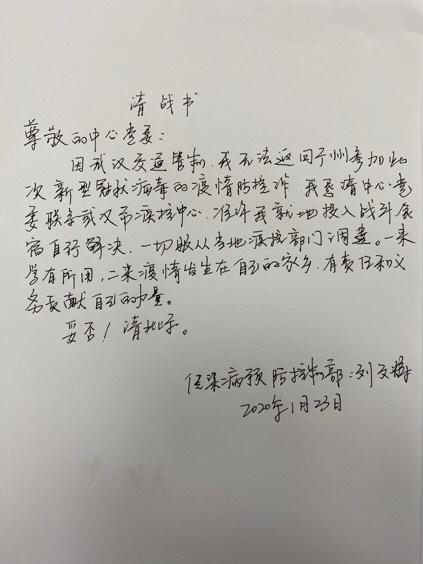 请战书
尊敬的中心党委：
因武汉交通管制，我无法返回广州参加此
次新型冠状病毒的疫情防控工作，我恳请中心党
委联系武汉市疾控中心，准许我就地投入战斗，食
宿自行解决，一切服从当地疾控部门调遣。一来
学有所用，二来疫情发生在自己的家乡，有责任和义
务贡献自己的力量。
妥否！请批示。
传染病预防控制部：刘文辉
2020年1月23日